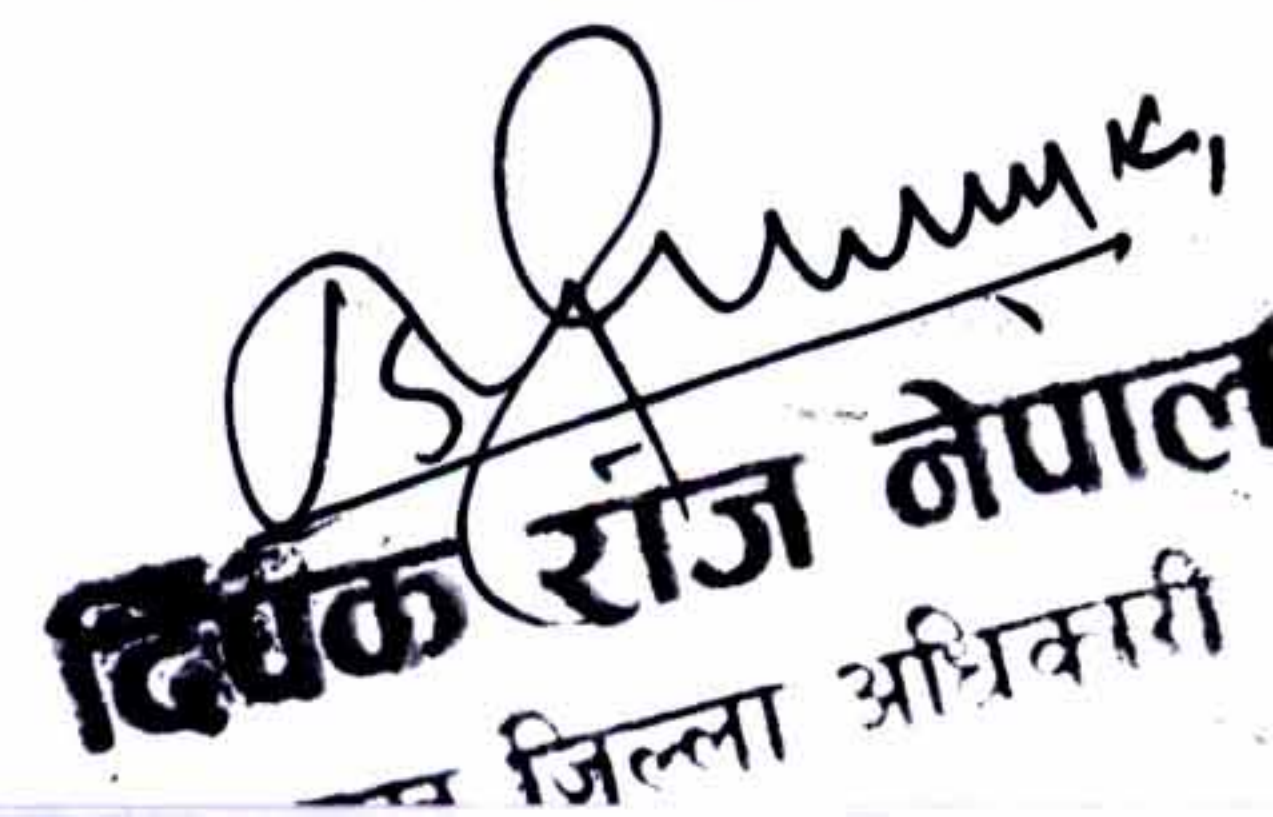 दिपक राज नेपाल
जिल्ला अधिकारी